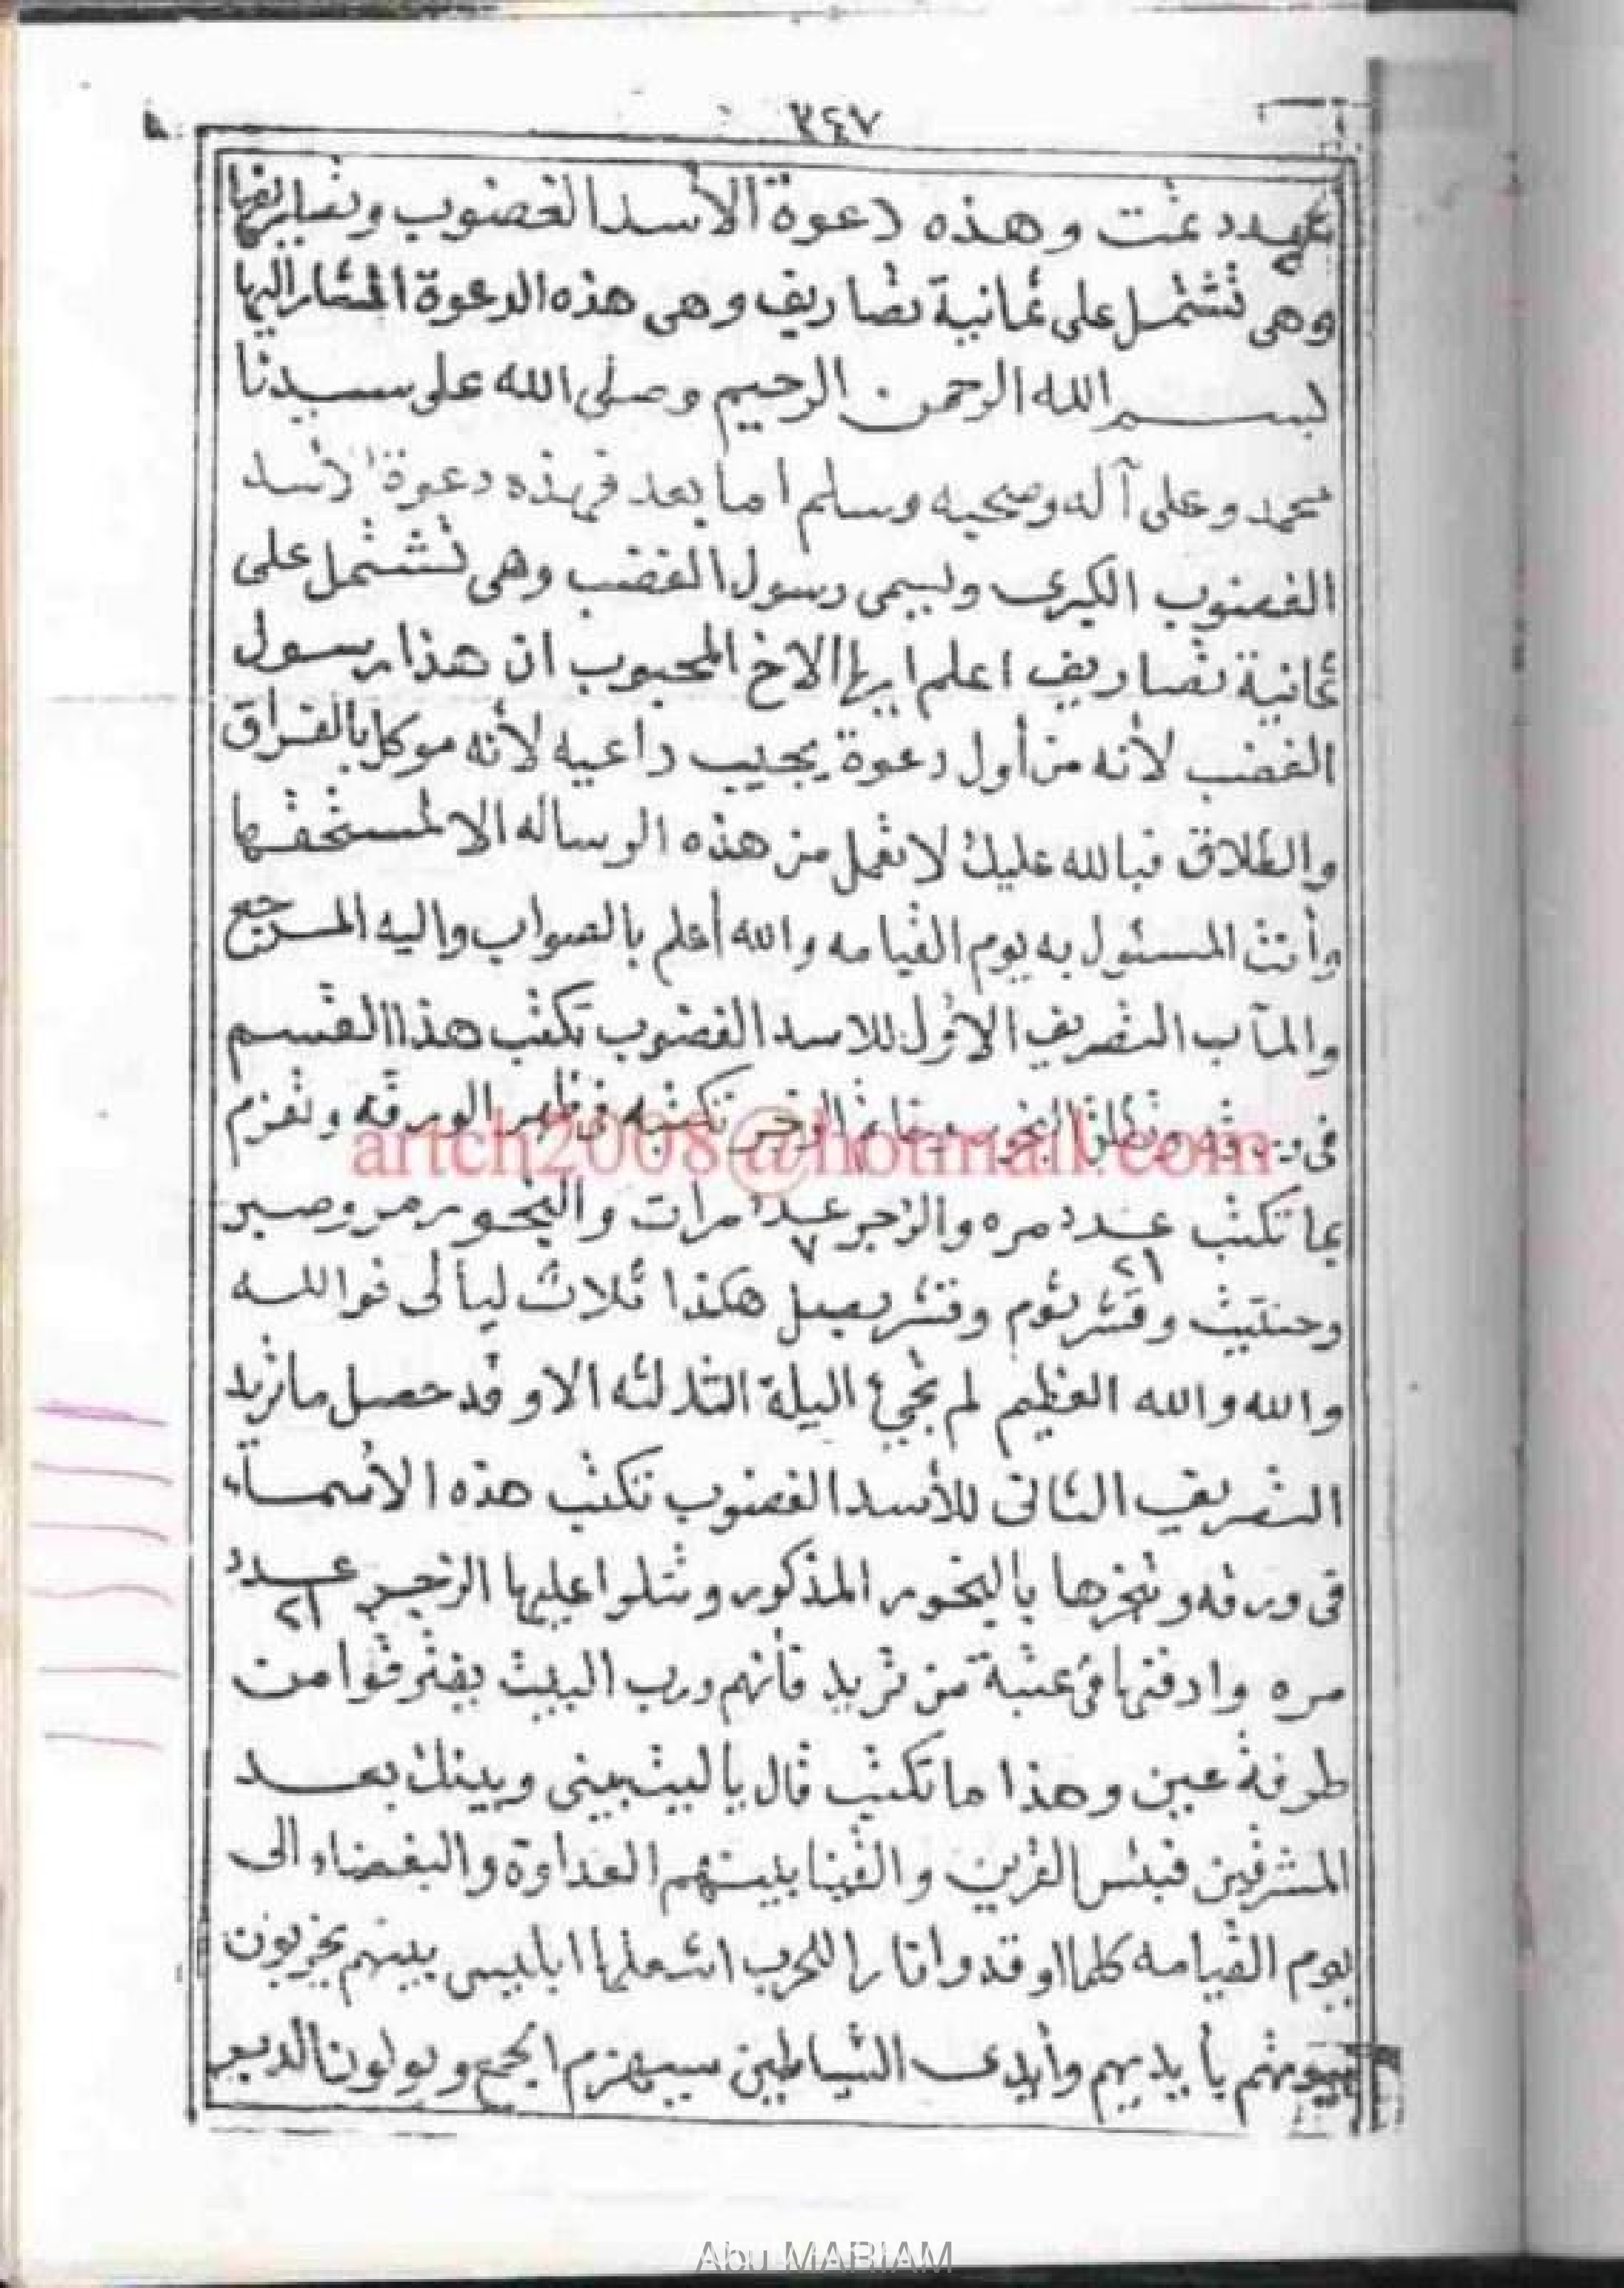 ٣٤٧
تمت وهذه دعوة الأسد الغضوب وتصاريفها
وهى تشتمل على ثمانية تصاريف وهى هذه الدعوة المشار اليها
بسم الله الرحمن الرحيم وصلى الله على سيدنا
محمد وعلى آله وصحبه وسلم اما بعد فهذه دعوة الاسد
الغضوب الكبرى وليسمى رسول الغضب وهى تشتمل على
ثمانية تصاريف اعلم ايها الاخ المحبوب ان هذا رسول
الغضب لأنه من أول دعوة يجيب داعيه لأنه موكل بالفراق
والطلاق فبالله عليك لا تعمل من هذه الرساله الا لمستحقها
وأنت المسئول به يوم القيامه والله أعلم بالصواب واليه المرجع
والمآب التصريف الأول للاسد الغضوب تكتب هذا القسم
فى ورقه وتطلق البخور الزجر تكتبه فى ظهر الورقه وتعزم
بما تكتب عدد مره والزجر عدد مرات والبخور مر وصبر
٢١ ٧
وحنتيت وقشر ثوم وقشر بصل هكذا ثلاث ليالى فوالله
والله والله العظيم لم تجئ اليلة الثالثه الا وقد حصل ما تريد
التصريف الثانى للأسد الغضوب تكتب هذه الأسماء
فى ورقه وتبخرها بالبخور المذكور وتتلوا عليها الزجر عدد
٢١
مره وادفنها فى عتبة من تريد فأنهم ورب البيت يفترقوا من
طرفة عين وهذا ما تكتب قال ياليت بينى وبينك بعد
المشرقين فبئس القرين والقينا بينهم العداوة والبغضاء الى
يوم القيامه كلما اوقدوا نارا للحرب اشعلها ابليس بينهم يخربون
بيوتهم بأيديهم وأيدى الشياطين سيهزم الجمع ويولون الدبر
artch2008@hotmail.com
Abu MARIAM